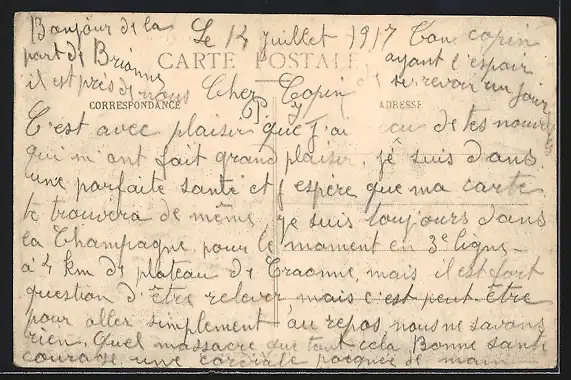 Bonjour de la
part de Brionne
il est près de nous
Le 14 juillet 1917
Ton copin
ayant l'espoir
de se revoir un jour
CARTE POSTALE
CORRESPONDANCE
ADRESSE
Cher Copin
C'est avec plaisir que j'ai reçu de tes nouvelles
qui m'ont fait grand plaisir, je suis dans
une parfaite santé et j'espère que ma carte
te trouvera de même je suis toujours dans
la Champagne pour le mament en 3e ligne
à 4 km de plateau de Craonne, mais il est fort
question d'être relever, mais c'est peut-être
pour aller simplement au repos, nous ne savons
rien. Quel massacre que tout cela Bonne santé
courage une cordiale poignée de main